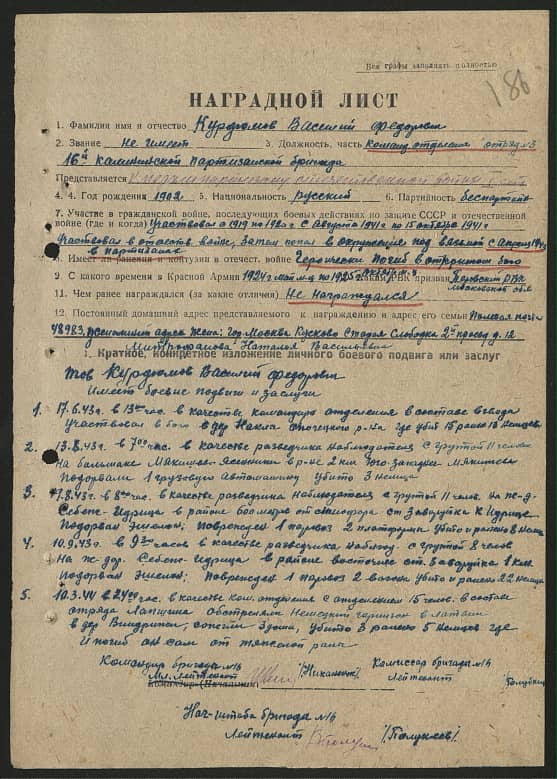 Все графы заполнять полностью
186
НАГРАДНОЙ ЛИСТ
1. Фамилия имя и отчество Курдюмов Василий Федорович
2. Звание Не имеет 3. Должность, часть Команд. отделения отряд №3
16й Калининской Партизанской бригады
Представляется к Отечественной
4. 4. Год рождения 1902 5. Национальность Русский 6. Партийность беспартийн
7. Участие в гражданской войне, последующих боевых действиях по защите СССР и отечественной
войне (где и когда) Участвовал с 1919 по 1920 с Августа 1941 по 15 октября 1941
Участвовал в отечеств войне, Затем попал в окружение под вязьмой с Апреля
в партизанах
8. Имеет ли ранения и контузии в отечест. войне Героически Погиб в
9. С какого времени в Красной Армии 1924г по 1925 РВК призван РВК
Московской обл
11. Чем ранее награждался (за какие отличия) Не Награждался
12. Постоянный домашний адрес представляемого к награждению и адрес его семьи Полевая почта
48983, Домашний адрес Жена: гор. Москва Кусково Старая Слободка 2й проезд д. 12
Митрофанова Наталья Васильевна
1. Краткое, конкретное изложение личного боевого подвига или заслуг
Тов Курдюмов Василий Федорович
Имеет боевые подвиги и заслуги
1. 17.6.43г. в 13 час. в качестве командира отделения в составе взвода
Участвовал в бою в дер Опочецкого р-на где убил 15 ранил 13 Немцев
2. 13.8.43г. в 7 час в качестве разведчика наблюдателя с группой 11 человек
На большаке в р-не 2 км Юго-западнее
Подорвали 1 грузовую автомашину Убито 3 немца
3. .8.43г. в 8 час. в качестве разведчика наблюдателя с группой 11 чел. на ж-д
Себеж-Идрица в районе от ст Заваруйка к Идрице
Подорван Эшелон; поврежден 1 паровоз 2 платформа. Убито и ранено 8 немцев
4. 10.9.43г. в 9 часов в качестве разведчика наблюд. с группой 8 человек
На ж. дор. Себеж-Идрица в районе восточнее ст. Заваруйка 1 км
Подорван Эшелон; Поврежден 1 паровоз 2 вагона Убито и ранено 22 немца
5. 10.3.44 в 2400 час. в качестве ком. отделения с отделением 15 человек в составе
отряда Лапшина Обстреляли Немецкий гарнизон в Латвии
в дер сожгли здания, убито 3 ранено 5 немцев где
И погиб он сам от тяжелой раны
Командир бригады №16
Мл. Лейтенант
Командир (Начальник)
Комиссар бригады №16
Лейтенант
Нач-штаба бригады №16
Лейтенант